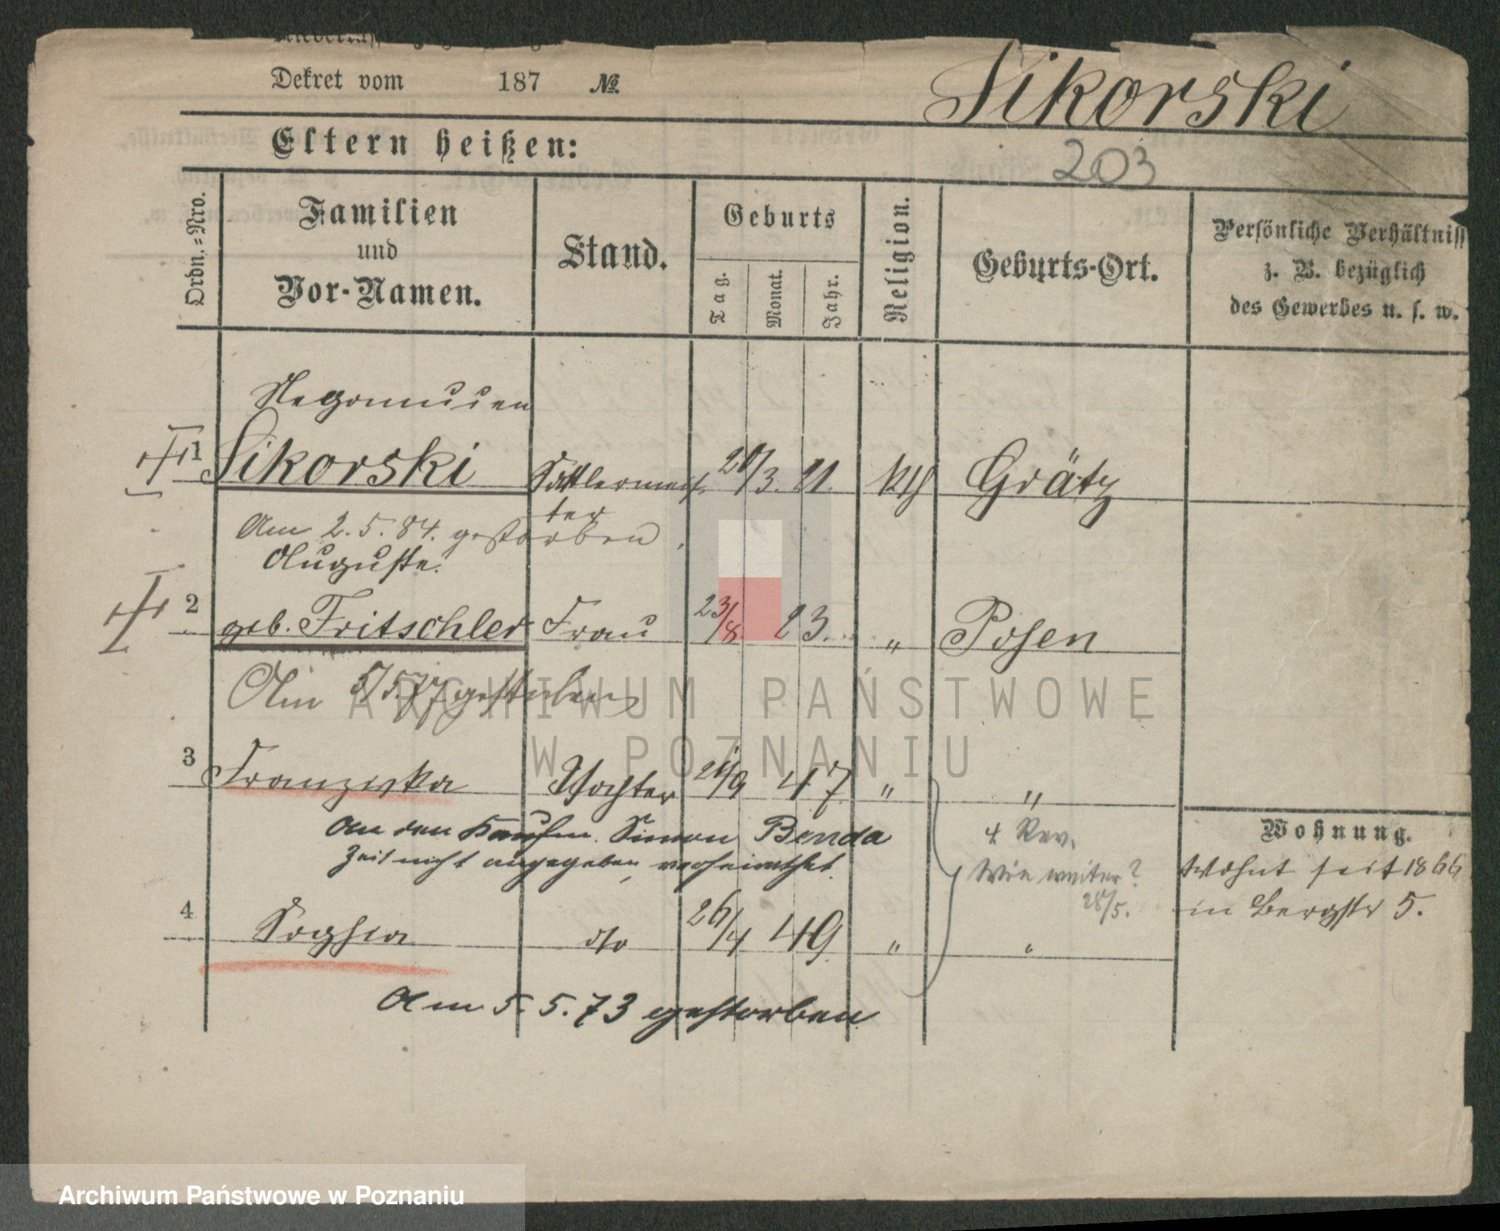 Dekret vom 187 №
Sikorski
Eltern heißen:
203
Ordn.=Nro.
Familien
und
Vor-Namen.
Stand.
Geburts
Tag.
Monat.
Jahr.
Religion.
Geburts-Ort.
Persönliche Verhältniss
z. B. bezüglich
des Gewerbes u. s. w.
Nepomucen
1 Sikorski Sattlermeis- 20/3. 11. kth Grätz
ter
Am 2.5.84. gestorben.
Auguste.
2 geb. Fritschler Frau 23/8. 23. " Posen
Am 5/5.77 gestorben
ARCHIWUM PAŃSTWOWE
W POZNANIU
3 Franziska Tochter 21/9 47 " "
An den Simon Benda
Zeit nicht angegeben, verheirathet.
4 Rev.
Wie weiter?
28/5.
Wohnung.
Wohnt seit 1866
in Bergstr 5.
4 Sophia do 26/4 49. " "
Am 5.5.73 gestorben
Archiwum Państwowe w Poznaniu